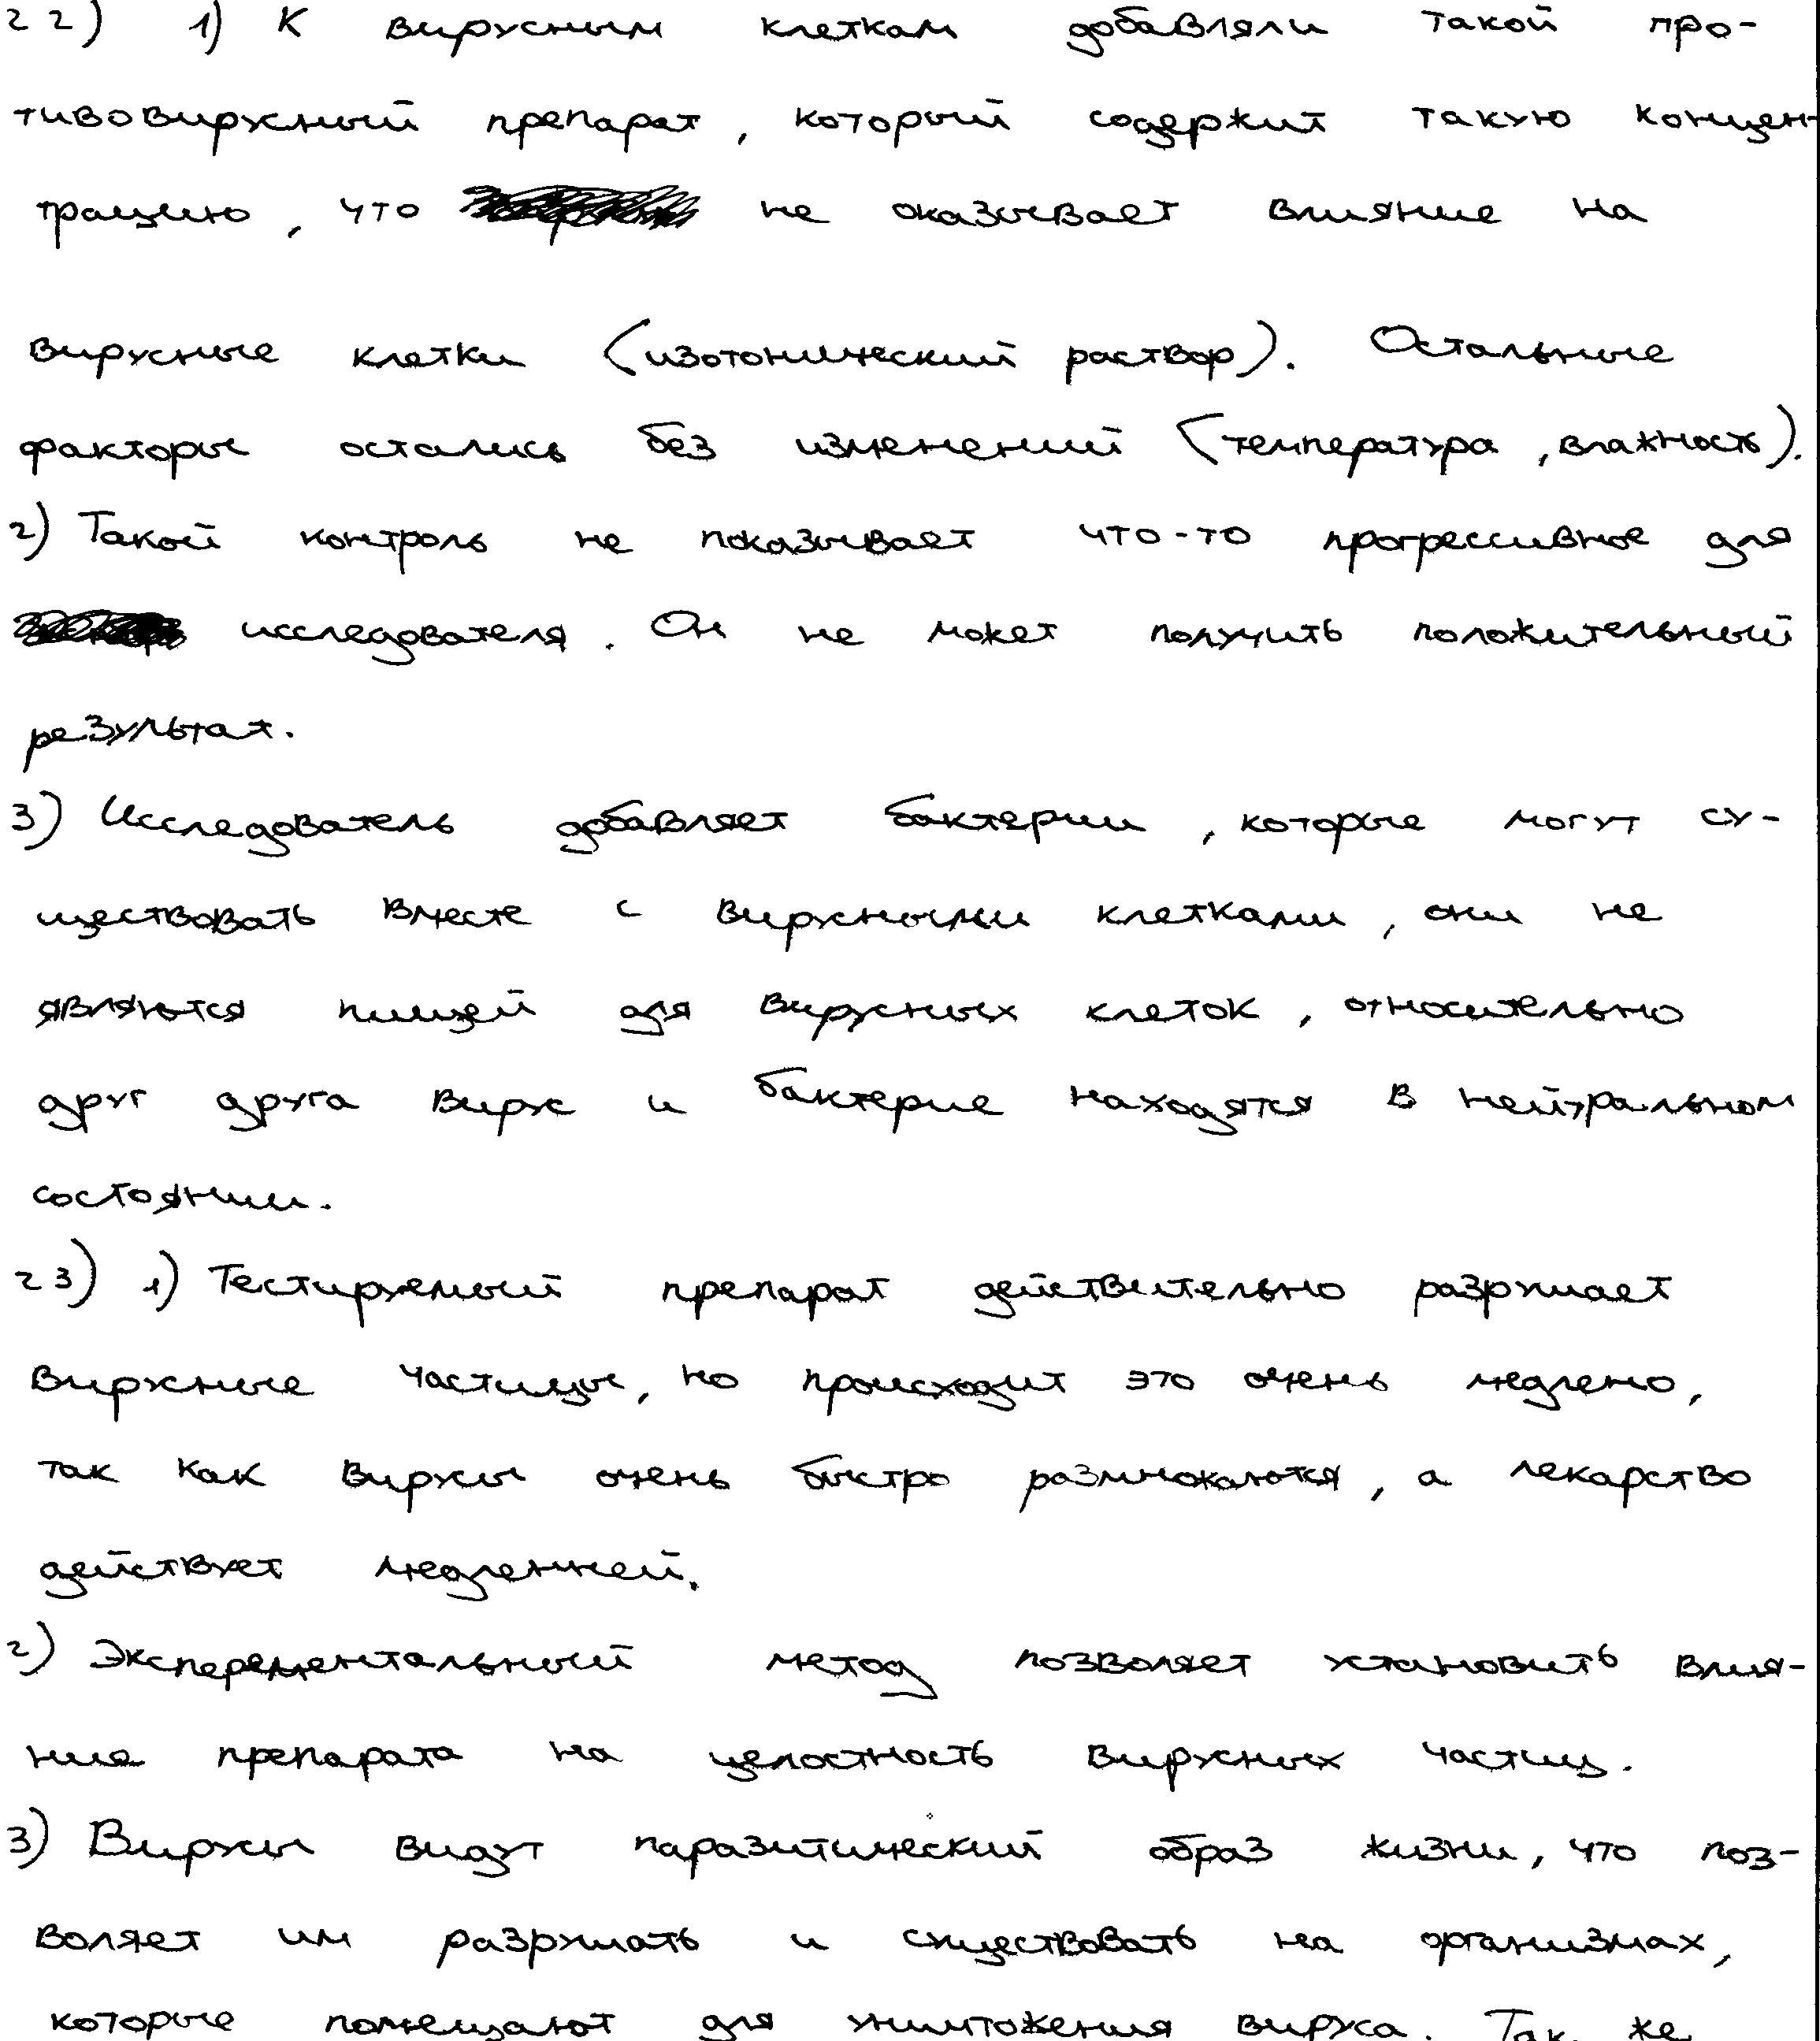 22) 1) К вирусным клеткам добавляли такой про-
тивовирусный препарат, который содержит такую концен-
трацию, что не оказывает влияние на
вирусные клетки (изотонический раствор). Остальные
факторы остались без изменений (температура, влажность).
2) Такой контроль не показывает что-то прогрессивное для
исследователя. Он не может получить положительный
результат.
3) Исследователь добавляет бактерии, которые могут су-
ществовать вместе с вирусными клетками, они не
являются пищей для вирусных клеток, относительно
друг друга вирус и бактерие находятся в нейтральном
состоянии.
23) 1) Тестируемый препарат действительно разрушает
вирусные частицы, но происходит это очень медлено,
так как вирусы очень быстро размножаются, а лекарство
действует медленней.
2) Эксперементальный метод позволяет установить влия-
ние препарата на целостность вирусных частиц.
3) Вирусы видут паразитический образ жизни, что поз-
воляет им разрушать и существовать на организмах,
которые помещают для уничтожения вируса. Так же